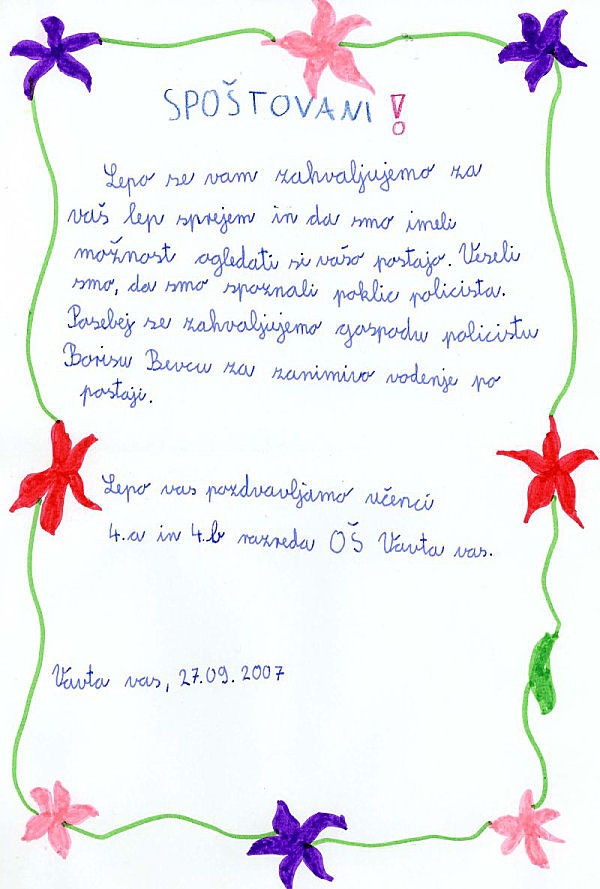 SPOŠTOVANI!
Lepo se vam zahvaljujemo za
vaš lep sprejem in da smo imeli
možnost ogledati si vašo postajo. Veseli
smo, da smo spoznali poklic policista.
Posebej se zahvaljujemo gospodu policistu
Borisu Bevcu za zanimivo vodenje po
postaji.
Lepo vas pozdravljamo učenci
4.a in 4.b razreda OŠ Vavta vas.
Vavta vas, 27.09.2007